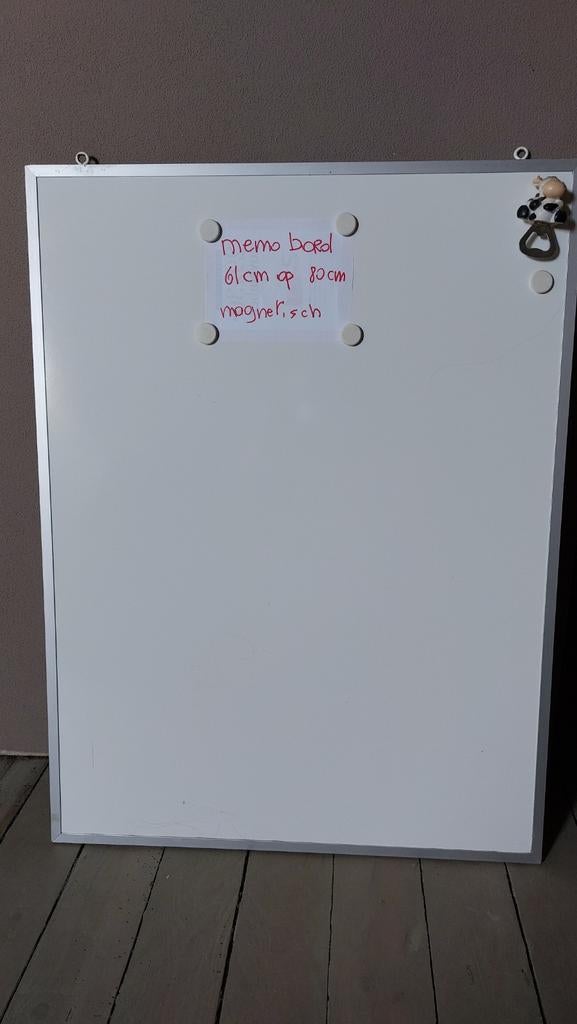 memo bord
61cm op 80cm
magnetisch